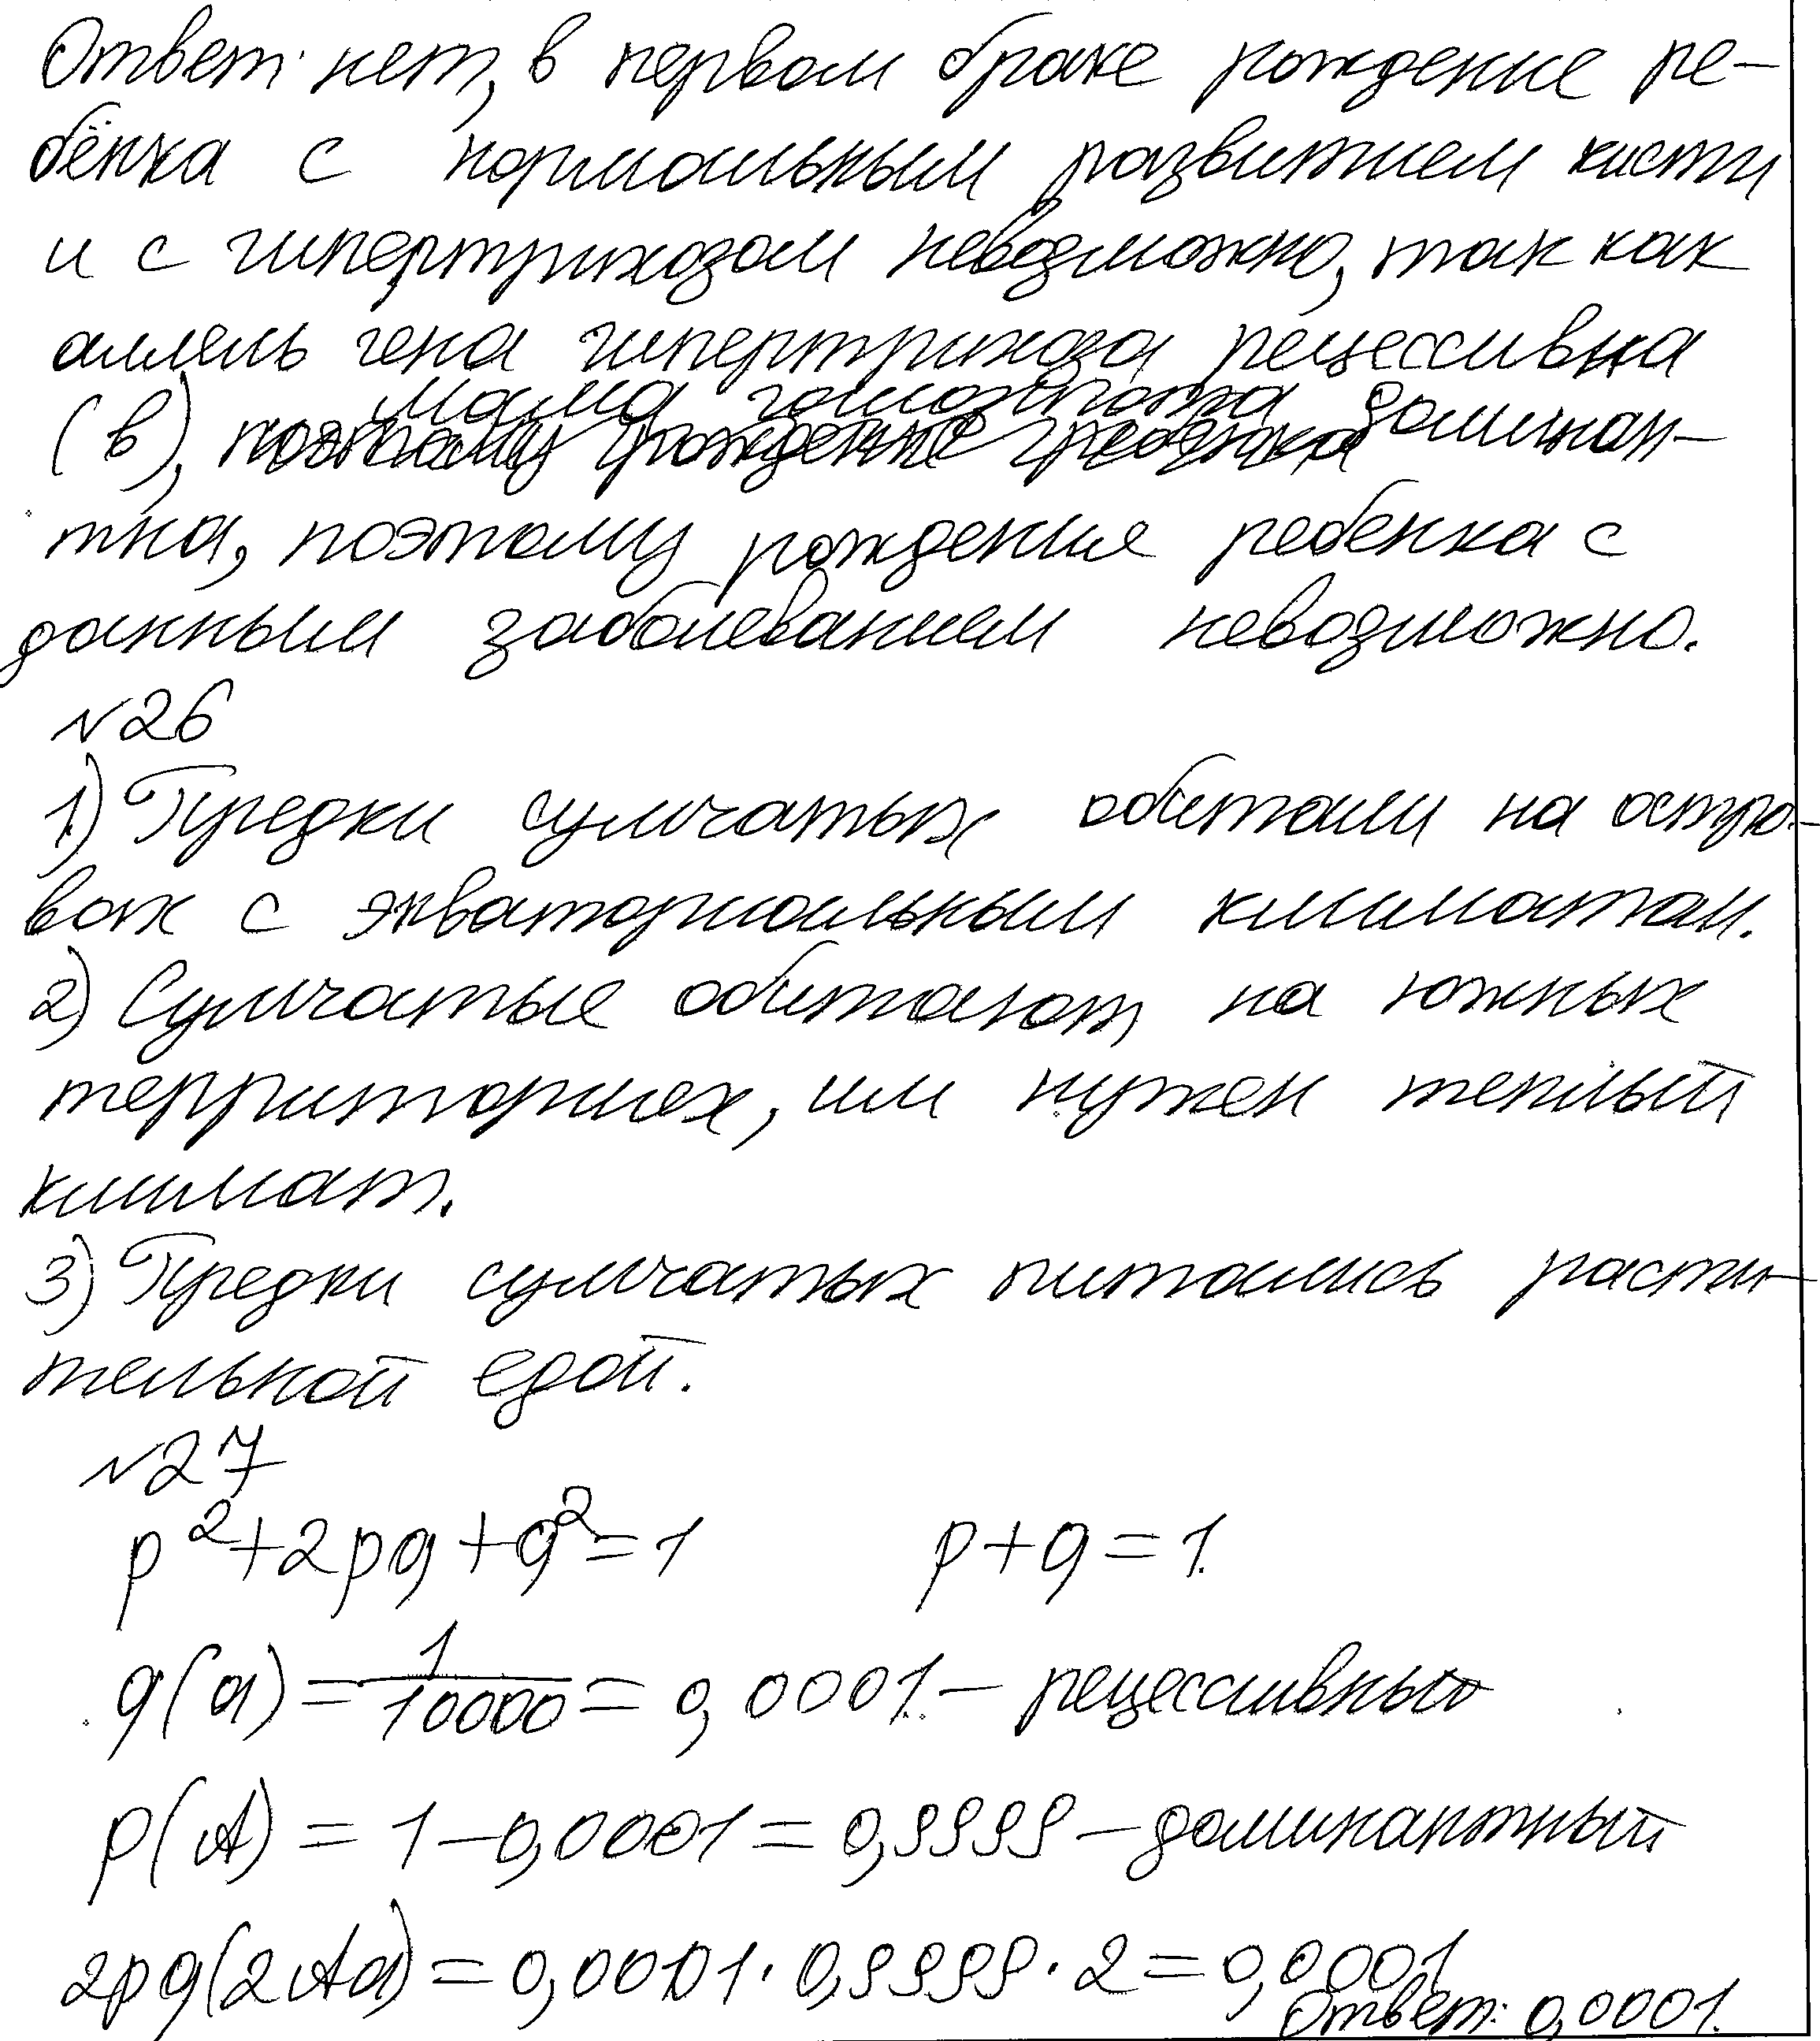 Ответ: нет, в первом браке рождение ре-
бёнка с нормальным развитием кисти
и с гипертрихозом невозможно, так как
аллель гена гипертрихоза рецессивна
(в), поэтому рождение ребёнка мама гомозигота доминан-
тна, поэтому рождение ребенка с
данным заболеванием невозможно.
№26
1) Предки сумчатых обитали на остро-
вах с экваториальным климатам.
2) Сумчатые обитают на южных
территориях, им нужен теплый
климат.
3) Предки сумчатых питались расти-
тельной едой.
№27
p²+2pq+q²=1 p+q=1
q(a)=1/10000=0,0001 – рецессивные
p(A)=1–0,0001=0,9999 – доминантный
2pq(2Aa)=0,0001·0,9999·2=0,0001
Ответ: 0,0001.